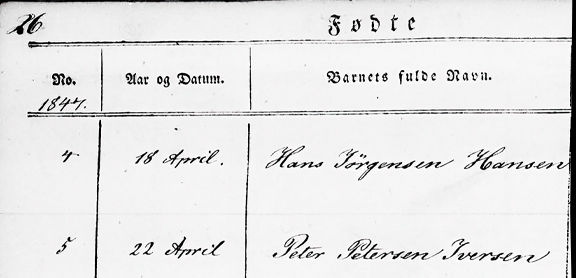 26 Fødte
No. Aar og Datum. Barnets fulde Navn.
1847.
4 18 April. Hans Jörgensen Hansen
5 22 April Peter Petersen Iversen